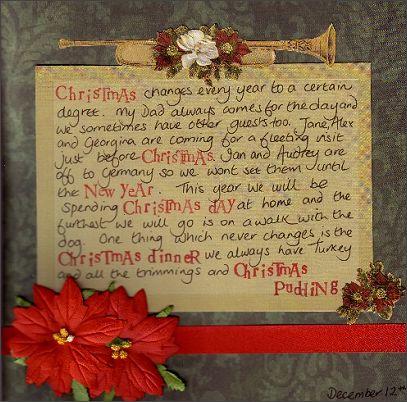 Christmas changes every year to a certain
degree. My Dad always comes for the day and
we sometimes have other guests too. Jane, Alex
and Georgina are coming for a fleeting visit
just before Christmas. Ian and Audrey are
off to Germany so we wont see them until
the New Year. This year we will be
spending Christmas day at home and the
furthest we will go is on a walk with the
dog. One thing which never changes is the
Christmas dinner we always have Turkey
and all the trimmings and Christmas
Pudding
December 12th